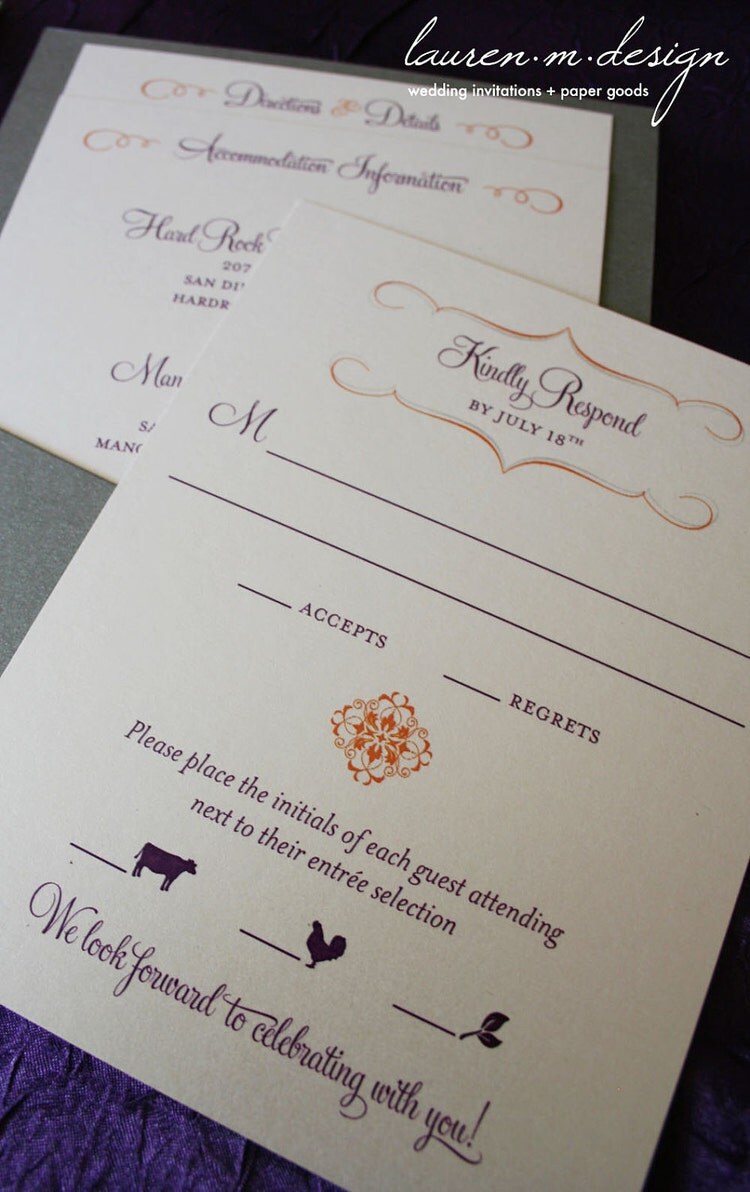 lauren·m·design
wedding invitations + paper goods
Directions & Details
Accommodation Information
Hard Rock
207
SAN DI
HARDR
Man
SA
MANC
Kindly Respond
BY JULY 18TH
M
ACCEPTS
REGRETS
Please place the initials of each guest attending
next to their entrée selection
We look forward to celebrating with you!